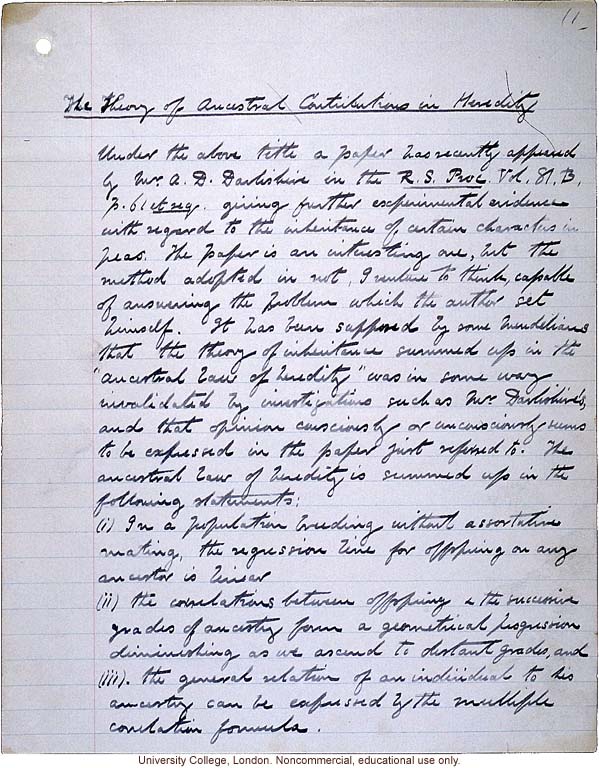 11
The Theory of Ancestral Contributions in Heredity
Under the above title a paper has recently appeared
by Mr. A. D. Darbishire in the R. S. Proc. Vol. 81, B,
p. 61 et seq. giving further experimental evidence
with regard to the inheritance of certain characters in
peas. The paper is an interesting one, but the
method adopted in not, I venture to think, capable
of answering the problem which the author set
himself. It has been supposed by some Mendelians
that the theory of inheritance summed up in the
"ancestral law of heredity" was in some way
invalidated by investigations such as Mr Darbishire's,
and that opinion consciously or unconsciously seems
to be expressed in the paper just referred to. The
ancestral law of heredity is summed up in the
following statements:
(i) In a population breeding without assortative
mating, the regression line for offspring on any
ancestor is linear
(ii) the correlations between offspring & the successive
grades of ancestry form a geometrical progression
diminishing as we ascend to distant grades, and
(iii). the general relation of an individual to his
ancestry can be expressed by the multiple
correlation formula.
University College, London. Noncommercial, educational use only.